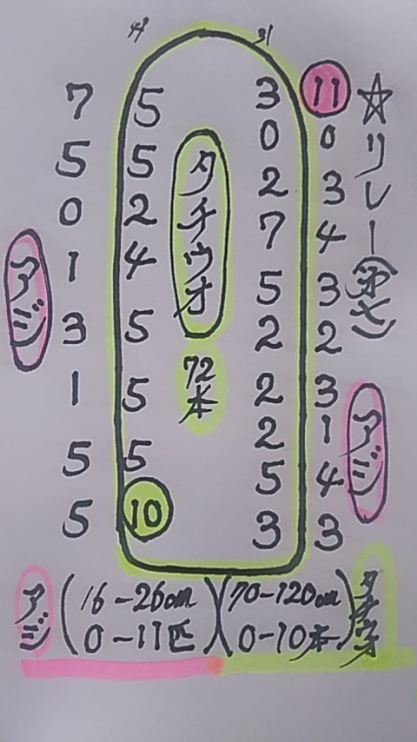 ☆リレー
41 31
7 5 3 11
5 5 0 0
0 2 2 3
1 4 7 4
3 5 5 3
1 5 2 2
5 5 2 3
2 1
5 4
5 10 3 3
タチウオ
72本
アジ
アジ
アジ (16-26cm 0-11匹)
(70-120cm 0-10本) タチウオ